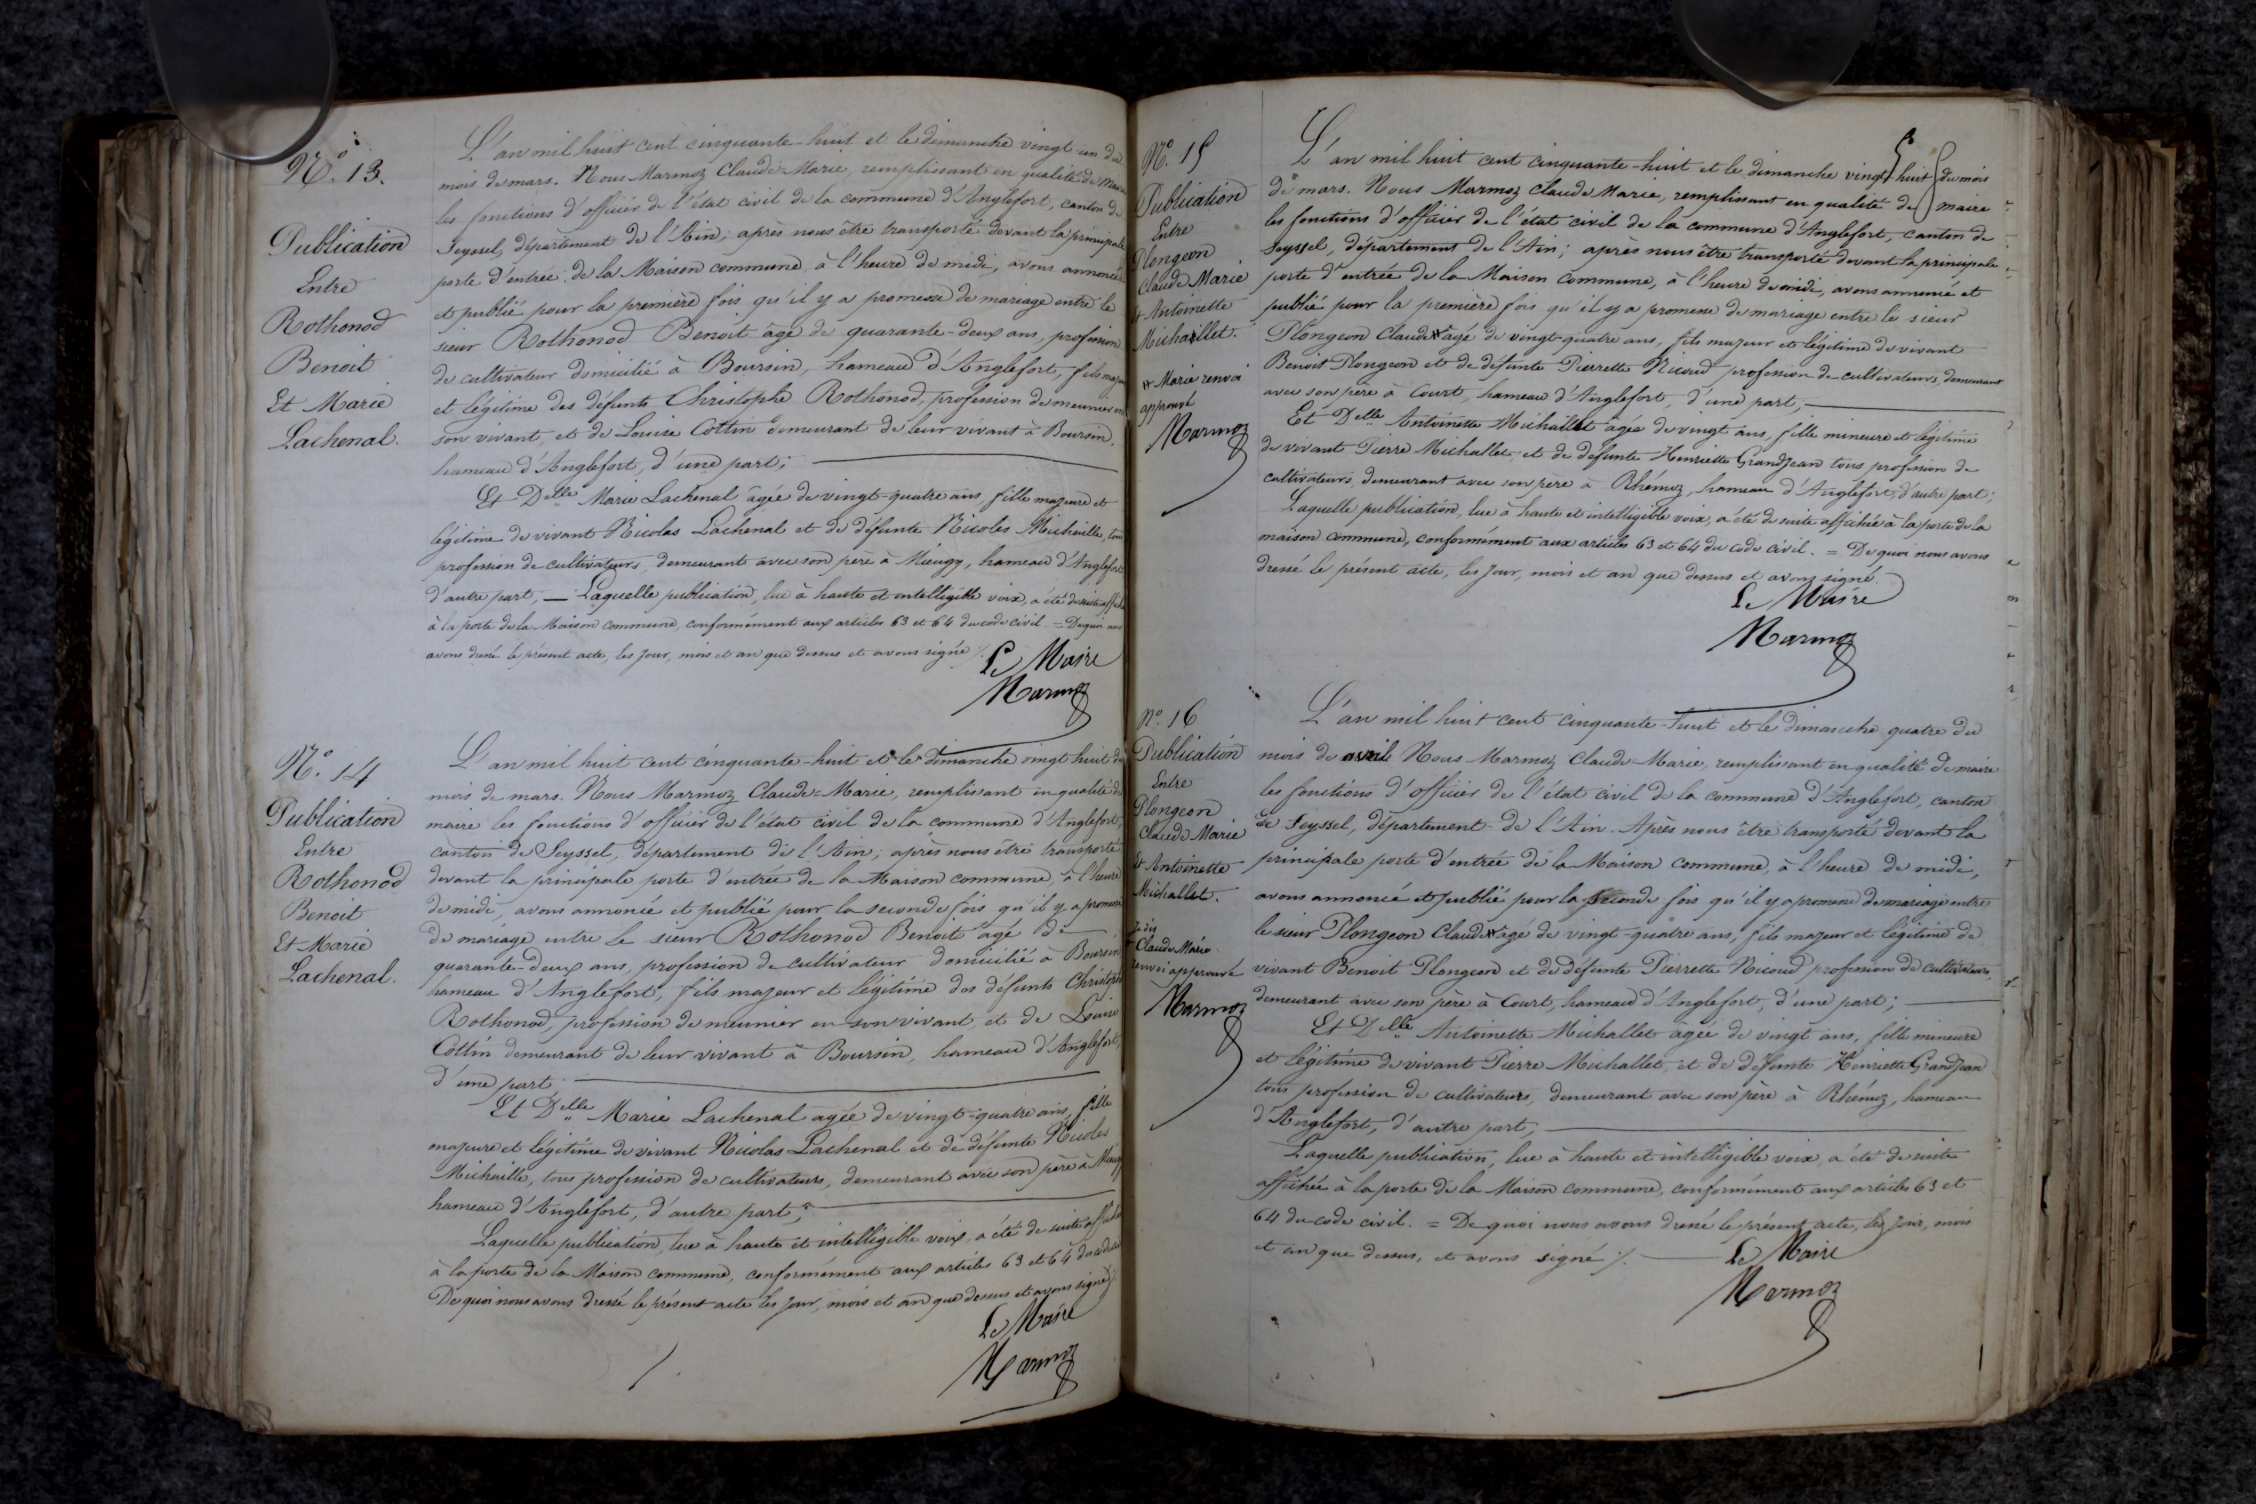 N.° 13.
Publication
Entre
Rothonod
Benoit
Et Marie
Lachenal.
L'an mil huit cent cinquante-huit et le dimanche vingt-un du
mois de mars. Nous Marmoz Claude-Marie, remplissant en qualité de maire
les fonctions d'officier de l'état civil de la commune d'Anglefort, canton de
Seyssel, département de l'Ain; après nous être transporté devant la principale
porte d'entrée de la Maison commune, à l'heure de midi, avons annoncé
et publié pour la première fois qu'il y a promesse de mariage entre le
sieur Rothonod Benoit âgé de quarante-deux ans, profession
de cultivateur domicilié à Boursin, hameau d'Anglefort, fils majeur
et légitime des défunts Christophe Rothonod, profession de meunier en
son vivant, et de Louise Cottin demeurant de leur vivant à Boursin,
hameau d'Anglefort, d'une part;
Et Delle Marie Lachenal âgée de vingt-quatre ans, fille majeure et
légitime de vivant Nicolas Lachenal et de défunte Nicoles Michaille, tous
profession de cultivateurs, demeurant avec son père à Mieugy, hameau d'Anglefort
d'autre part, — Laquelle publication, lue à haute et intelligible voix, a été de suite affichée
à la porte de la Maison commune, conformément aux articles 63 et 64 du code civil. = De quoi nous
avons dressé le présent acte, les jour, mois et an que dessus et avons signé ⁒.
Le Maire
Marmoz
N.° 14
Publication
Entre
Rothonod
Benoit
Et Marie
Lachenal.
L'an mil huit cent cinquante-huit et le dimanche vingt huit du
mois de mars. Nous Marmoz Claude=Marie, remplissant en qualité de
maire les fonctions d'officier de l'état civil de la commune d'Anglefort,
canton de Seyssel, département de l'Ain; après nous être transporté
devant la principale porte d'entrée de la Maison commune, à l'heure
de midi, avons annoncé et publié pour la seconde fois qu'il y a promesse
de mariage entre le sieur Rothonod Benoit âgé de
quarante-deux ans, profession de cultivateur domicilié à Boursin
hameau d'Anglefort, fils majeur et légitime des défunts Christophe
Rothonod, profession de meunier en son vivant, et de Louise
Cottin demeurant de leur vivant à Boursin, hameau d'Anglefort,
d'une part
Et Delle Marie Lachenal âgée de vingt-quatre ans, fille
majeure et légitime de vivant Nicolas Lachenal et de défunte Nicoles
Michaille, tous profession de cultivateurs, demeurant avec son père à Mieugy
hameau d'Anglefort, d'autre part,
Laquelle publication, lue à haute et intelligible voix, a été de suite affichée
à la porte de la Maison commune, conformément aux articles 63 et 64 du code civil
De quoi nous avons dressé le présent acte les jour, mois et an que dessus et avons signé
Le Maire
Marmoz
N.° 15
Publication
Entre
Plongeon
Claude Marie
Et Antoinette
Michallet.
* Marie renvoi
approuvé
Marmoz
L'an mil huit cent cinquante-huit et le dimanche vingt-huit du mois
de mars. Nous Marmoz Claude Marie, remplissant en qualité de maire
les fonctions d'officier de l'état civil de la commune d'Anglefort, canton de
Seyssel, département de l'Ain; après nous être transporté devant la principale
porte d'entrée de la Maison commune, à l'heure de midi, avons annoncé et
publié pour la première fois qu'il y a promesse de mariage entre le sieur
Plongeon Claude* âgé de vingt-quatre ans, fils majeur et légitime de vivant
Benoit Plongeon et de défunte Pierrette Nicoud profession de cultivateurs, demeurant
avec son père à Court, hameau d'Anglefort, d'une part,
Et Delle Antoinette Michallet âgée de vingt ans, fille mineure et légitime
de vivant Pierre Michallet, et de défunte Henriette Grandjean tous profession de
cultivateurs, demeurant avec son père à Rhémoz, hameau d'Anglefort, d'autre part;
Laquelle publication, lue à haute et intelligible voix, a été de suite affichée à la porte de la
maison commune, conformément aux articles 63 et 64 du code civil. = De quoi nous avons
dressé le présent acte, les jour, mois et an que dessus et avons signé.
Le Maire
Marmoz
N.° 16
Publication
Entre
Plongeon
Claude Marie
Et Antoinette
Michallet.
Je dis
* Claude Marie
renvoi approuvé
Marmoz
L'an mil huit cent cinquante-huit et le dimanche quatre du
mois de avril Nous Marmoz Claude-Marie, remplissant en qualité de maire
les fonctions d'officier de l'état civil de la commune d'Anglefort, canton
de Seyssel, département de l'Ain. Après nous être transporté devant la
principale porte d'entrée de la Maison commune, à l'heure de midi,
avons annoncé et publié pour la seconde fois qu'il y a promesse de mariage entre
le sieur Plongeon Claude* âgé de vingt-quatre ans, fils majeur et légitime de
vivant Benoit Plongeon et de défunte Pierrette Nicoud profession de cultivateurs,
demeurant avec son père à Court, hameau d'Anglefort, d'une part;
Et Delle Antoinette Michallet âgée de vingt ans, fille mineure
et légitime de vivant Pierre Michallet, et de défunte Henriette Grandjean
tous profession de cultivateurs, demeurant avec son père à Rhémoz, hameau
d'Anglefort, d'autre part,
Laquelle publication, lue à haute et intelligible voix, a été de suite
affichée à la porte de la Maison commune, conformément aux articles 63 et
64 du code civil. = De quoi nous avons dressé le présent acte, les jour, mois
et an que dessus, et avons signé ⁒.
Le Maire
Marmoz